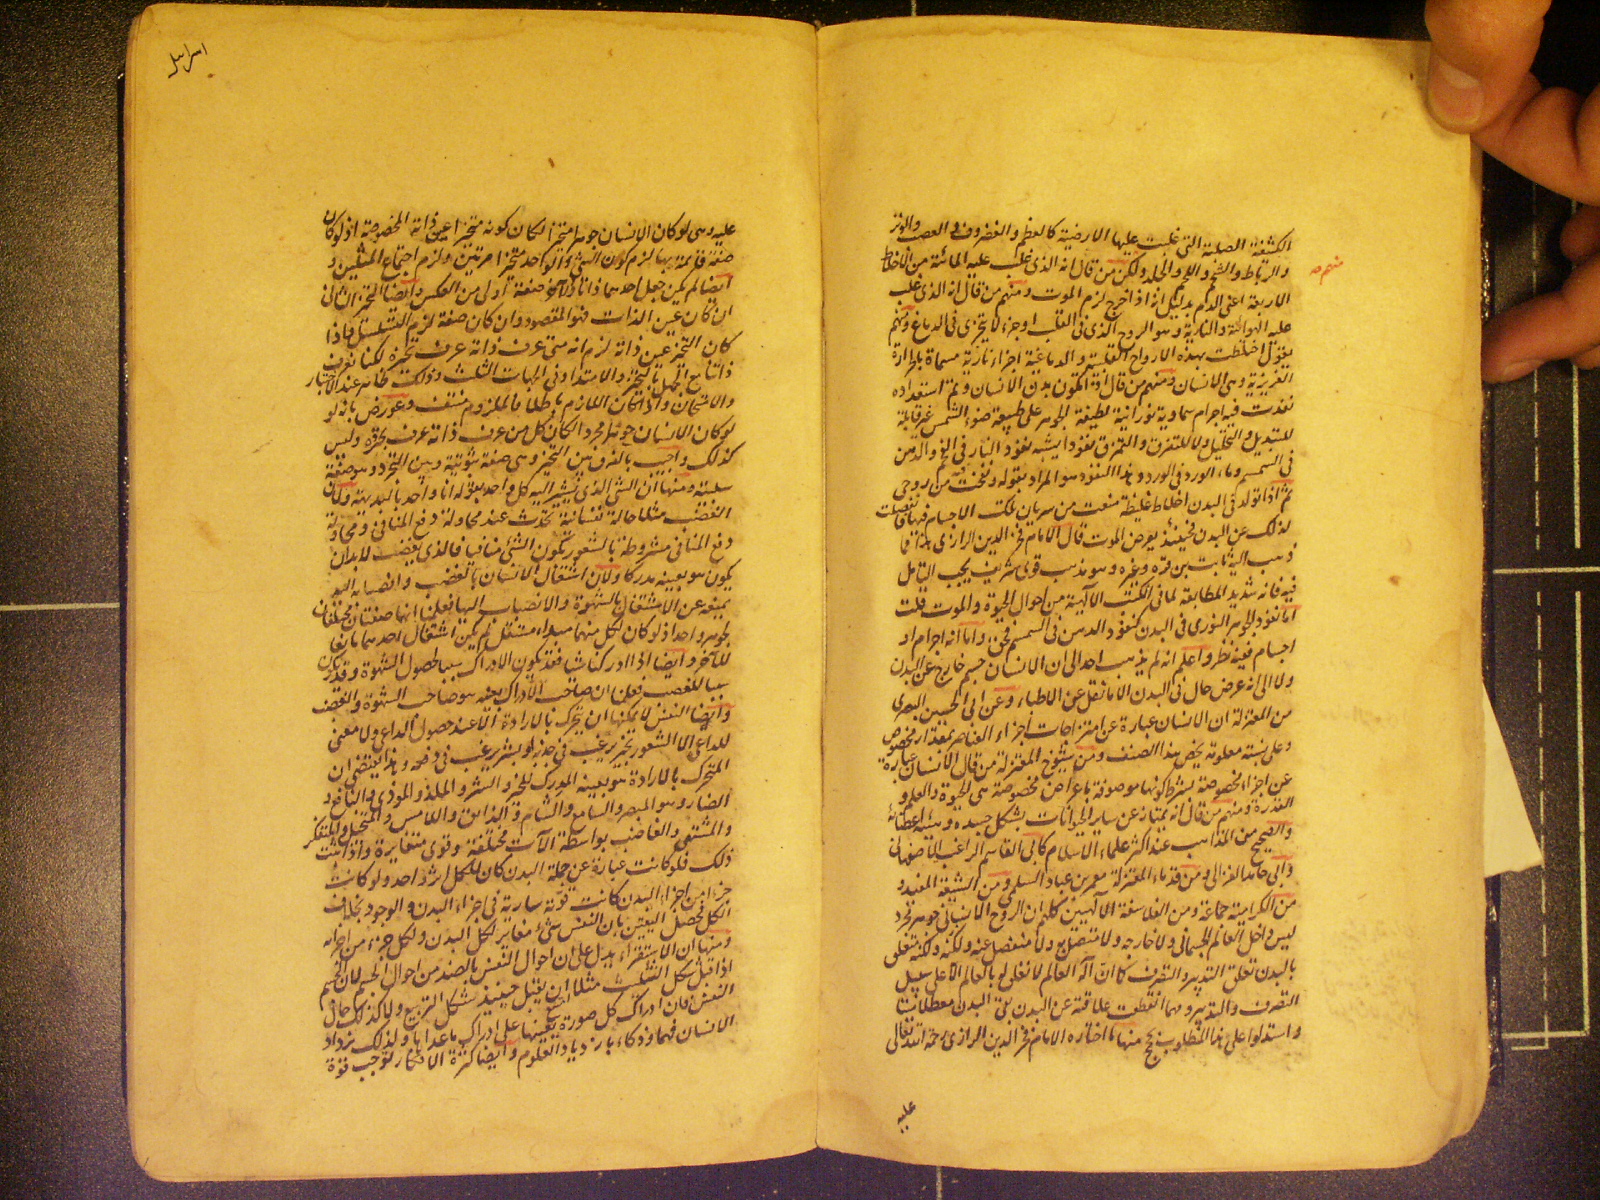 الكثيفة الصلبة التى غلبت عليها الارضية كالعظم والغضروف والعصب والوتر
والرباط والشحم واللحم والجلد ولكن من قال انه الذى غلب عليه المائية من الاخلاط
منهم صح
الاربعة اعنى الدم بدليل انه اذا خرج لزم الموت ومنهم من قال انه الذى غلب
عليه الهوائية والنارية وهو الروح الذى فى القلب او جزء لا يتجزى فى الدماغ ومنهم
يقول اختلطت بهذه الارواح القلبية والدماغية اجزاء نارية مسماة بالحرارة
الغريزية وهى الانسان ومنهم من قال اذا تكون بدن الانسان وتم استعداده
نفذت فيه اجرام سماوية نورانية لطيفة الجوهر على طبيعة ضوء الشمس غير قابلة
للتبديل والتحليل ولا للتفرق والتمزق نفوذا يشبه نفوذ النار فى الفحم والدهن
فى السمسم وماء الورد فى الورد وهذا النفوذ هو المراد بقوله ونفخت فيه من روحى
ثم اذا تولد فى البدن اخلاط غليظة منعت من سريان تلك الاجسام فيها فانفصلت
لذلك عن البدن فحينئذ يعرض الموت قال الامام فخر الدين الرازى هذا مما
ذهب اليه ثابت بن قره وغيره وهو مذهب قوى شريف يجب التامل
فيه فانه شديد المطابقة لما فى الكتب الالهية من احوال الحيوة والموت قلت
اما نفوذ الجوهر النورى فى البدن كنفوذ الدهن فى السمسم فحق واما انه اجرام او
اجسام ففيه نظر واعلم انه لم يذهب احد الى ان الانسان جسم خارج عن البدن
ولا الى انه عرض حال فى البدن الا ما نقل عن الاطباء وعن ابى الحسين البصرى
من المعتزلة ان الانسان عبارة عن امتزاجات اجزاء العناصر بمقدار مخصوص
وعلى نسبة معلومة يخص هذا الصنف ومن شيوخ المعتزلة من قال الانسان عبارة
عن اجزاء مخصوصة بشرط كونها موصوفة باعراض مخصوصة هى الحيوة والعلم و
القدرة ومنهم من قال انه يمتاز عن ساير الحيوانات بشكل جسده وهيئة اعضائه
والصحيح من المذاهب عند اكثر علماء الاسلام كابى القاسم الراغب الاصفهانى
وابى حامد الغزالى ومن قدماء المعتزلة معمر بن عباد السلمى ومن الشيعة المفيد و
من الكرامية جماعة ومن الفلاسفة الالهيين كلهم ان الروح الانسانى جوهر مجرد
ليس داخل العالم الجسمانى ولا خارجه ولا متصل به ولا منفصل عنه ولكنه متعلق
بالبدن تعلق التدبير والتصرف كما ان اله العالم لا تعلق له بالعالم الا على سبيل
التصرف والتدبير ومهما انقطعت علاقته عن البدن بقى البدن معطلا ميتا
واستدلوا على هذا المطلوب بحجج منها ما اختاره الامام فخر الدين الرازى رحمة الله تعالى
عليه
عليه وهى لو كان الانسان جوهرا متحيزا لكان كونه متحيزا عين ذاته المخصوصة اذ لو كان
صفة قائمة بها لزم كون الشئ الواحد متحيزا مرتين ولزم اجتماع المثلين و
ايضا لم يكن جعل احدهما ذاتا والاخر صفة اولى من العكس وايضا التحيز الثانى
ان كان عين الذات فهو المقصود وان كان صفة لزم التسلسل فاذا
كان التحيز عين ذاته لزم انه متى عرف ذاته عرف تحيزه لكنا نعرف
ذاتنا مع الجهل بالتحيز والامتداد فى الجهات الثلث وذلك ظاهر عند الاختبار
والامتحان واذا كان اللازم باطلا فالملزوم منتف وعورض بانه لو
لو كان الانسان جوهرا مجردا لكان كل من عرف ذاته عرف تجرده وليس
كذلك واجيب بالفرق بين التحيز وهى صفة ثبوتية وبين التجرد وهو صفة
سلبية ومنها ان الشئ الذى يشير اليه كل واحد بقوله انا واحد بالبديهة ولان
الغضب مثلا حالة نفسانية تحدث عند محاولة دفع المنافى ومحاولة
دفع المنافى مشروطة بالشعور بكون الشئ منافيا فالذى يغضب لا بد ان
يكون هو بعينه مدركا ولان اشتغال الانسان بالغضب وانصبابه اليه
يمنعه عن الاشتغال بالشهوة والانصباب اليها فعلمنا انهما صفتان مختلفتان
لجوهر واحد اذ لو كان لكل منهما مبداء مستقل لم يكن اشتغال احدهما مانعا
للاخر وايضا اذا ادركنا شيا فقد يكون الادراك سببا لحصول الشهوة وقد يكون
سببا للغضب فعلمنا ان صاحب الادراك بعينه هو صاحب الشهوة والغضب
وايضا النفس لا يمكنها ان تتحرك بالارادة الا عند حصول الداعى ولا معنى
للداعى الا الشعور بخير يرغب فى جذبه او بشر يرغب فى دفعه وهذا يقتضى ان
المتحرك بالارادة هو بعينه المدرك للخير والشر والملذ والموذى والنافع و
الضار وهو المبصر والسامع والشام والذايق واللامس والمتخيل والمتفكر
والمشتهى والغاضب بواسطة آلات مختلفة وقوى متغايرة واذا ثبت
ذلك فلو كانت عبارة عن جملة البدن كان للكل اثر واحد ولو كانت
جزءا من اجزاء البدن كانت قوته سارية فى اجزاء البدن والوجود بخلاف
الكل فحصل اليقين بان النفس شئ مغاير لكل البدن ولكل جزء من اجزائه
ومنها ان الاستقراء يدل على ان احوال النفس بالضد من احوال الجسم لان الجسم
اذا قبل شكل التثليث مثلا امتنع ان يقبل حينئذ شكل التربيع ولا كذلك حال
النفس فان ادراك كل صورة يعينها على ادراك ما عداها ولذلك يزداد
الانسان فهما وذكاء بازدياد العلوم وايضا كثرة الافكار توجب قوة